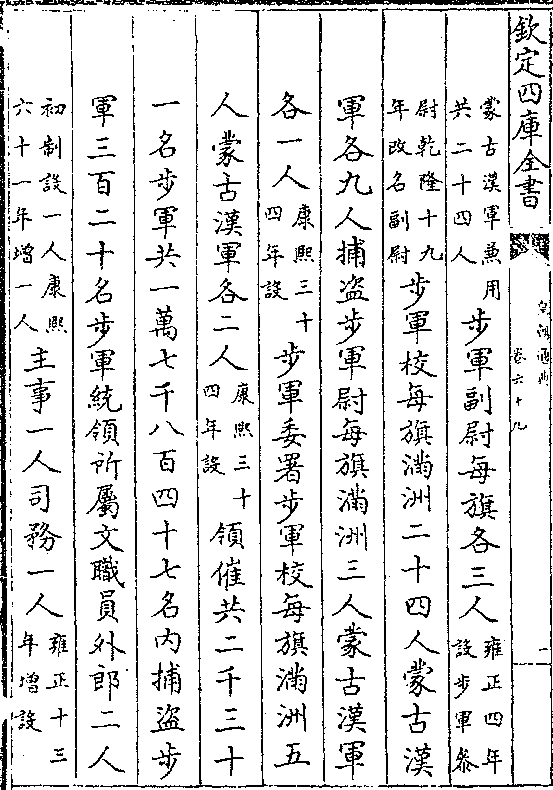 欽定四庫全書
皇朝通典
卷六十九
一
蒙古漢軍兼用
共二十四人
步軍副尉每旗各三人
雍正四年
設步軍叅
尉乾隆十九
年改名副尉
步軍校每旗滿洲二十四人蒙古漢
軍各九人捕盗步軍尉每旗滿洲三人蒙古漢軍
各一人
康熙三十
四年設
步軍委署步軍校每旗滿洲五
人蒙古漢軍各二人
康熙三十
四年設
領催共二千三十
一名步軍共一萬七千八百四十七名内捕盗步
軍三百二十名步軍統領所屬文職員外郎二人
初制設一人康熙
六十一年增一人
主事一人司務一人
雍正十三
年增設